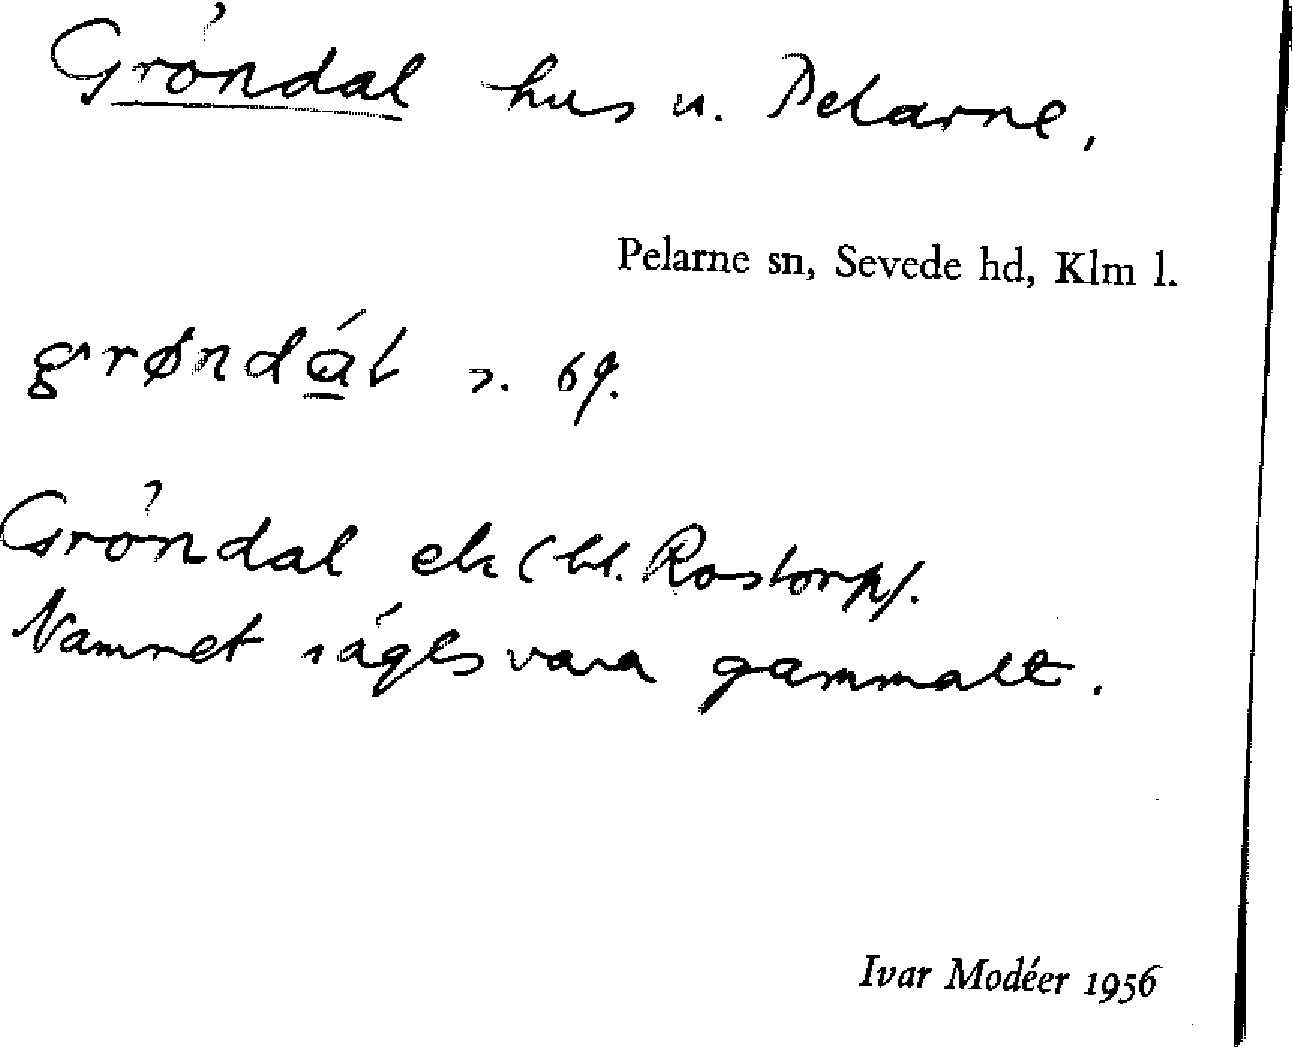 Gröndal hus u. Pelarne,
Pelarne sn, Sevede hd, Klm l.
grøndál s. 69.
Gröndal ek (bl. Rostorp).
Namnet säges vara gammalt.
Ivar Modéer 1956